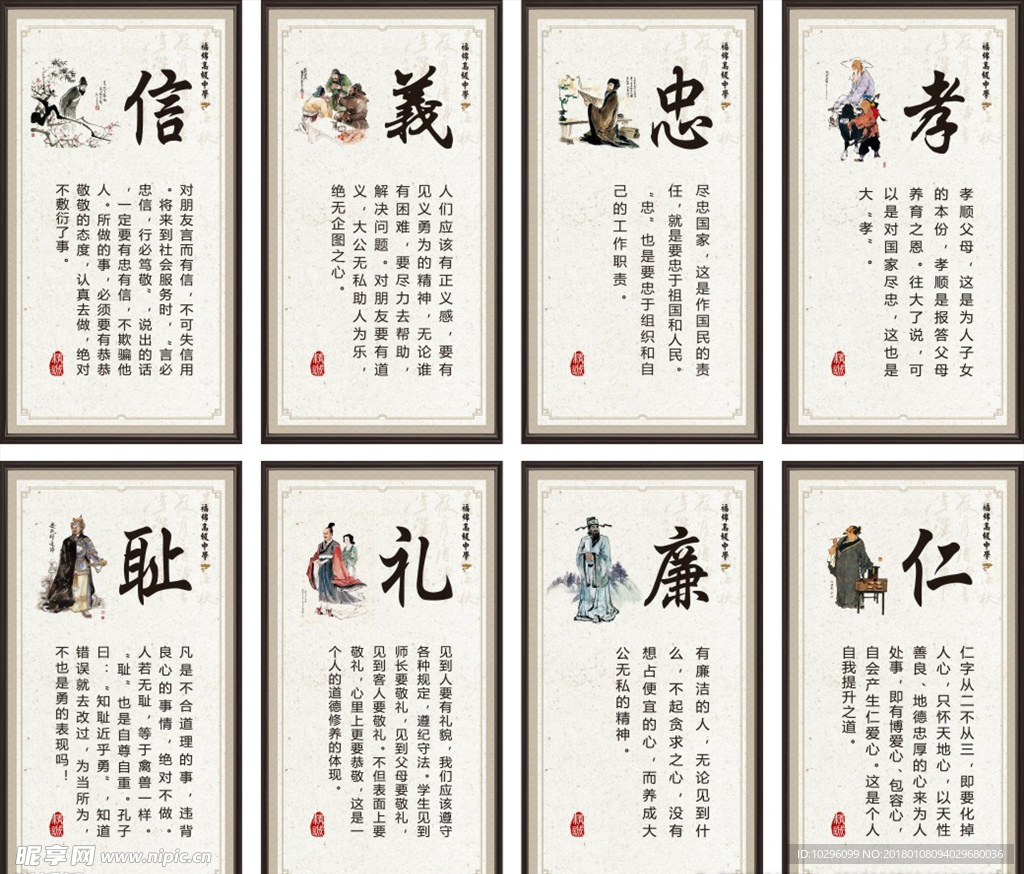 福绵高级中學
信
对朋友言而有信,不可失信用
。将来到社会服务时,“言必
忠信,行必笃敬”,说出的话
,一定要有忠有信,不欺骗他
人。所做的事,必须要有恭恭
敬敬的态度,认真去做,绝对
不敷衍了事。
福绵高级中學
義
人们应该有正义感,要有
见义勇为的精神,无论谁
有困难,要尽力去帮助,
解决问题。对朋友要有道
义,大公无私助人为乐,
绝无企图之心。
福绵高级中學
忠
尽忠国家,这是作国民的责
任,就是要忠于祖国和人民。
“忠”也是要忠于组织和自
己的工作职责。
福绵高级中學
孝
孝顺父母,这是为人子女
的本份,孝顺是报答父母
养育之恩。往大了说,可
以是对国家尽忠,这也是
大“孝”。
福绵高级中學
耻
凡是不合道理的事,违背
良心的事情,绝对不做。
人若无耻,等于禽兽一样。
“耻”也是自尊自重。孔子
曰:“知耻近乎勇”,知道
错误就去改过,为当所为,
不也是勇的表现吗!
福绵高级中學
礼
见到人要有礼貌,我们应该遵守
各种规定,遵纪守法。学生见到
师长要敬礼,见到父母要敬礼,
见到客人要敬礼。不但表面上要
敬礼,心里上更要恭敬,这是一
个人的道德修养的体现。
福绵高级中學
廉
有廉洁的人,无论见到什
么,不起贪求之心,没有
想占便宜的心,而养成大
公无私的精神。
福绵高级中學
仁
仁字从二不从三,即要化掉
人心,只怀天地心,以天性
善良、地德忠厚的心来为人
处事,即有博爱心、包容心,
自会产生仁爱心。这是个人
自我提升之道。
昵享网 www.nipic.cn
ID:10296099 NO:20180108094029680036